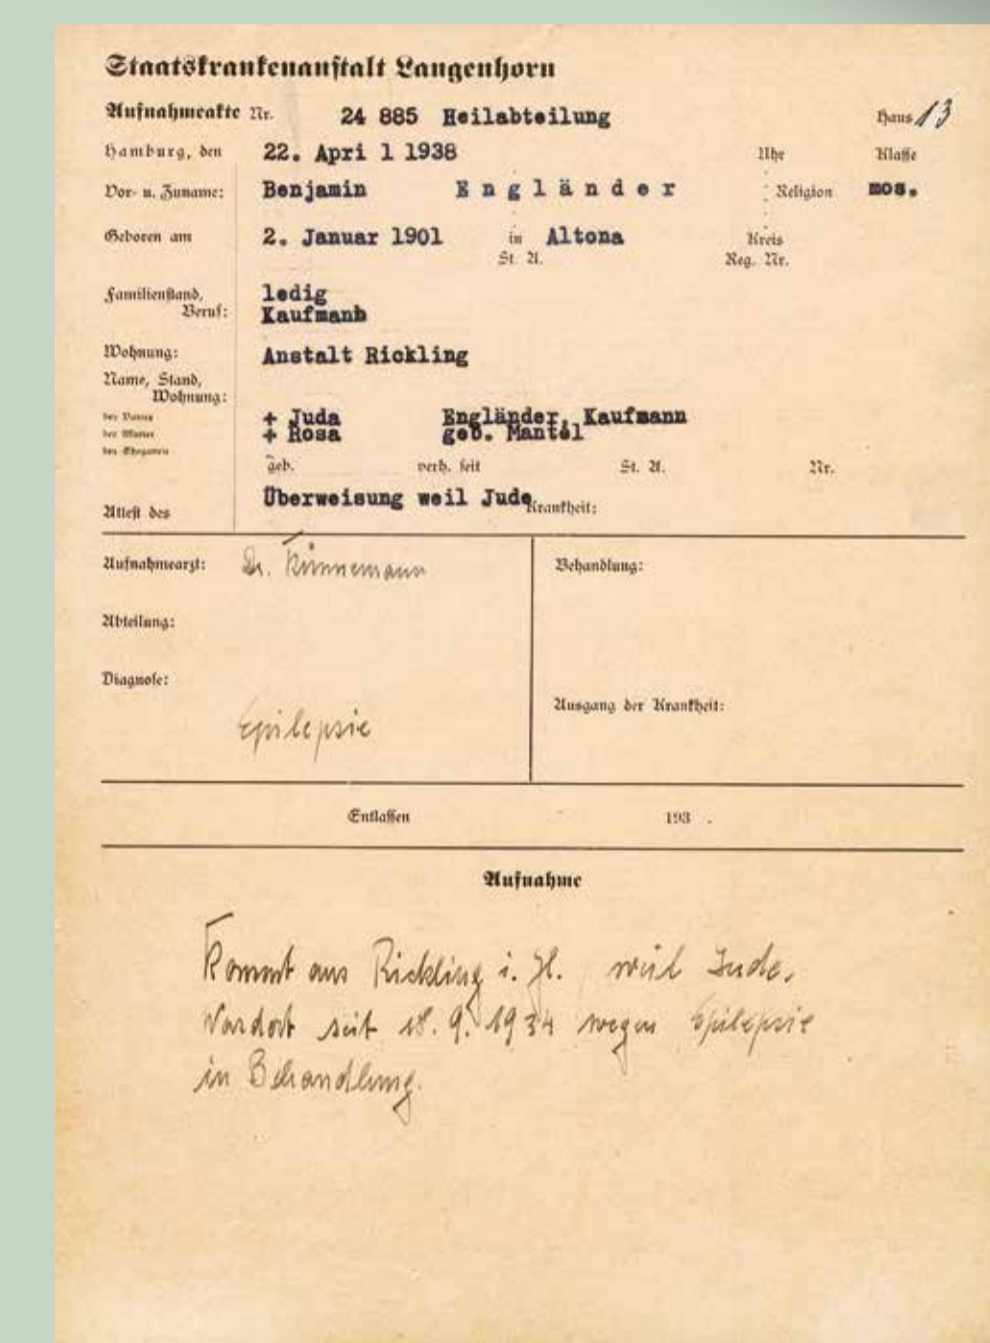 Staatskrankenanstalt Langenhorn
Aufnahmeakte Nr. 24 885 Heilabteilung Haus 13
Hamburg, den 22. Apri l 1938 Uhr Klasse
Vor- u. Zuname: Benjamin Engländer Religion mos.
Geboren am 2. Januar 1901 in Altona Kreis
St. A. Reg. Nr.
Familienstand, ledig
Beruf: Kaufmanb
Wohnung: Anstalt Rickling
Name, Stand,
Wohnung:
des Vaters + Juda Engländer, Kaufmann
der Mutter + Rosa geb. Mantel
des Ehegatten
geb. verh. seit St. A. Nr.
Attest des Überweisung weil Jude Krankheit:
Aufnahmearzt: Dr. Künnemann
Behandlung:
Abteilung:
Diagnose:
Epilepsie
Ausgang der Krankheit:
Entlassen 193 .
Aufnahme
Kommt aus Rickling i. H. weil Jude.
War dort seit 18. 9. 1934 wegen Epilepsie
in Behandlung.